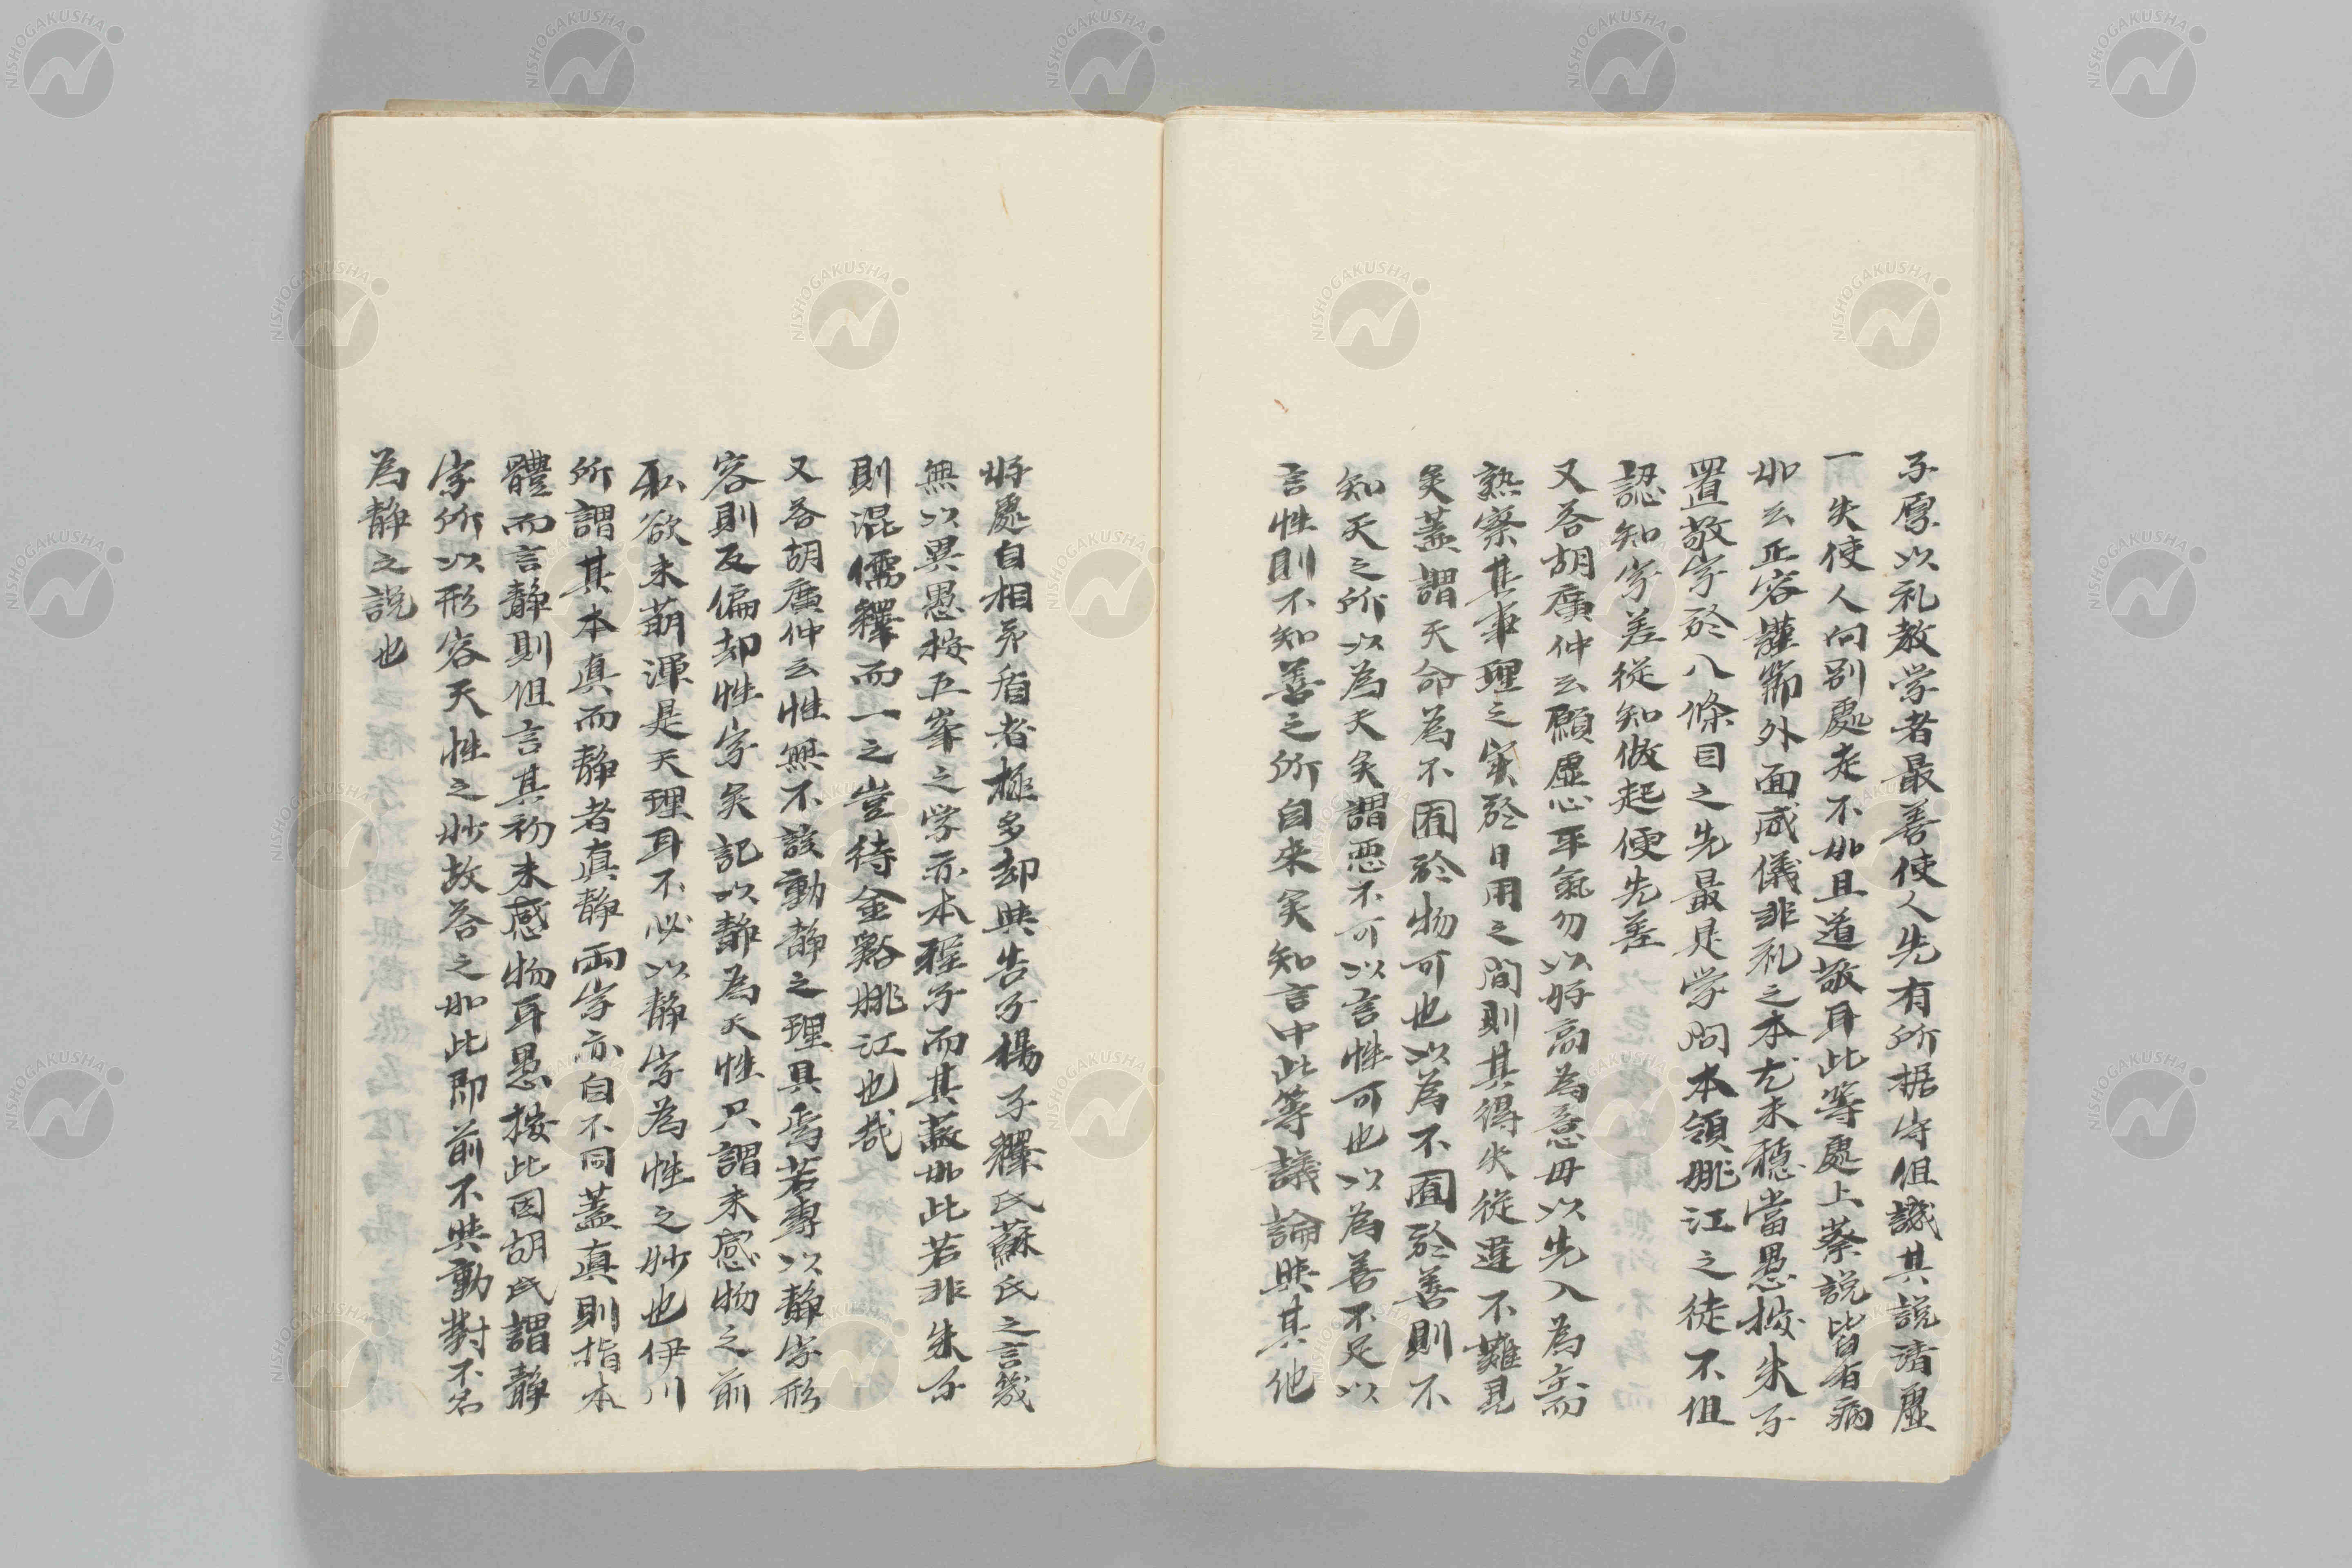 子厚以礼教学者最善使人先有所据守但譏其説清虚
一失使人向別處走不如且道敬耳此等處上蔡説皆有病
如云正容謹節外面威儀非礼之本尤未穏當愚按朱子
置敬字於八條目之先最是学問本領姚江之徒不但
認知字差從知做起便先差
又答胡廣仲云願虚心平氣勿以好高為意毋以先入為主而
熟察其事理之实於日用之間則其得失從違不難見
矣蓋謂天命為不囿於物可也以為不囿於善則不
知天之所以為天矣謂悪不可以言性可也以為善不足以
言性則不知善之所自来矣知言中此等議論與其他
好處自相矛盾者極多却與告子楊子釋氏蘇氏之言幾
無以異愚按五峯之学亦本程子而其蔽如此若非朱子
則混儒釋而一之豈待金谿姚江也哉
又答胡廣仲云性無不該動静之理具焉若専以静字形
容則反偏却性字矣記以静為天性只謂未感物之前
私欲未萌渾是天理耳不必以静字為性之妙也伊川
所謂其本真而静者真静両字亦自不同蓋真則指本
體而言静則但言其初未感物耳愚按此因胡氏謂静
字所以形容天性之妙故答之如此即前不與動對不名
為静之説也
NISHOGAKUSHA